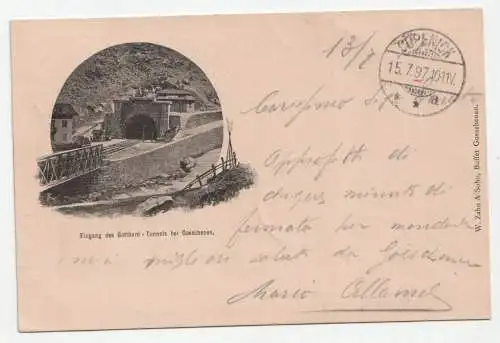 13/7
CÖPENICK
15.7.97.10-11V.
Carissimo
Approfitto di
minuti di
fermata per mandarle
i miei migliori saluti da Göschenen
Mario
Eingang des Gotthard-Tunnels bei Goeschenen.
W. Zahn & Sohn, Buffet Goeschenen.